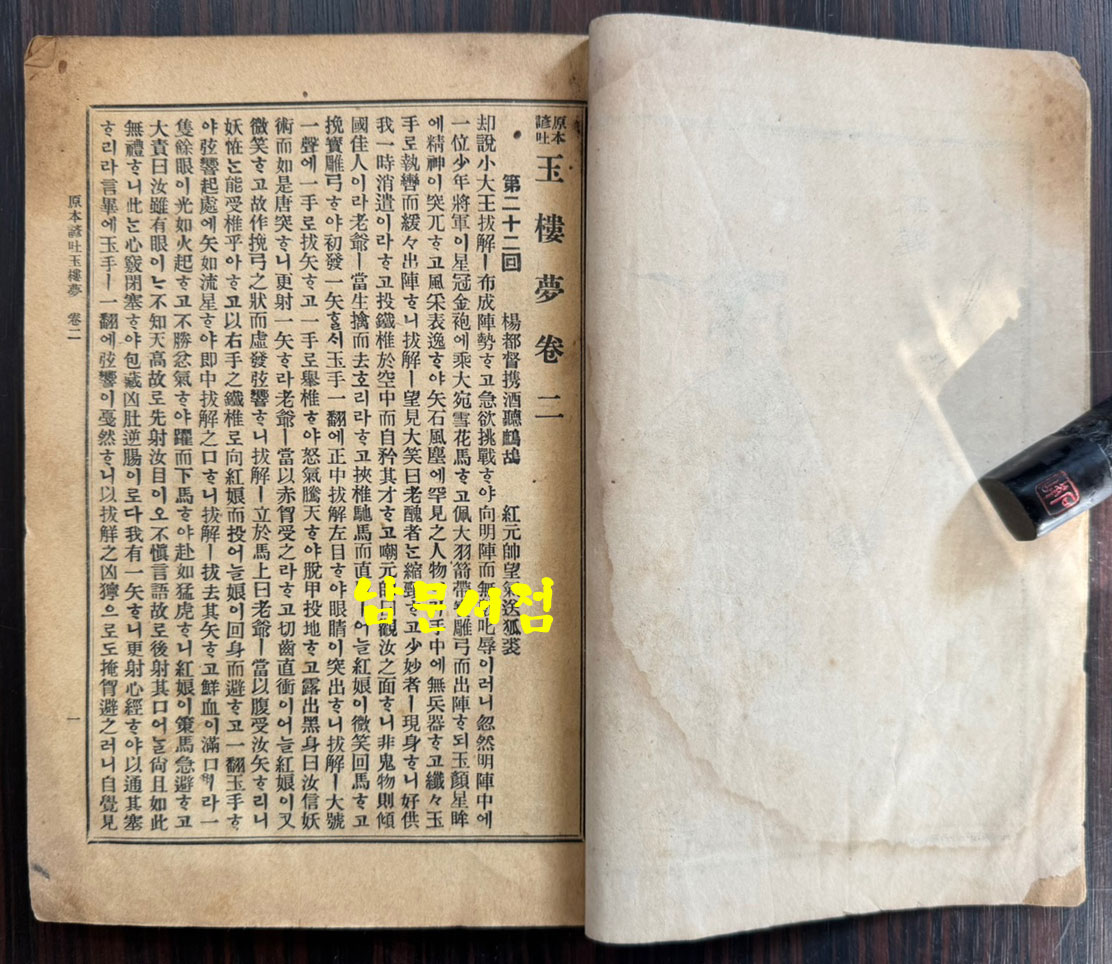 原本諺吐 玉樓夢 卷二
第二十二回 楊都督携酒聽鷓鴣 紅元帥望氣送狐裘
却說小大王拔解ㅣ布成陣勢ᄒᆞ고急欲挑戰ᄒᆞ야向明陣而無 叱辱이러니忽然明陣中에
一位少年將軍이星冠金袍에乘大宛雪花馬ᄒᆞ고佩大羽箭帶 雕弓而出陣ᄒᆞ되玉顏星眸
에精神이突兀ᄒᆞ고風采表逸ᄒᆞ야矢石風塵에罕見之人物 手中에無兵器ᄒᆞ고纖々玉
手로執轡而緩々出陣ᄒᆞ니拔解ㅣ望見大笑曰老醜者ᄂᆞᆫ縮頸ᄒᆞ고少妙者ㅣ現身ᄒᆞ니好供
我一時消遣이라ᄒᆞ고投鐵椎於空中而自矜其才ᄒᆞ고嘲元帥曰觀汝之面ᄒᆞ니非鬼物則傾
國佳人이라老爺ㅣ當生擒而去호리라ᄒᆞ고挾椎馳馬而直 ㅣ어ᄂᆞᆯ紅娘이微笑回馬ᄒᆞ고
挽寶雕弓ᄒᆞ야初發一矢ᄒᆞᆯᄉᆡ玉手一翻에正中拔解左目ᄒᆞ야眼睛이突出ᄒᆞ니拔解ㅣ大號
一聲에一手로拔矢ᄒᆞ고一手로擧椎ᄒᆞ야怒氣騰天ᄒᆞ야脫甲投地ᄒᆞ고露出黑身曰汝信妖
術而如是唐突ᄒᆞ니更射一矢ᄒᆞ라老爺ㅣ當以赤胷受之라ᄒᆞ고切齒直衝이어ᄂᆞᆯ紅娘이又
微笑ᄒᆞ고故作挽弓之狀而虛發弦響ᄒᆞ니拔解ㅣ立於馬上曰老爺ㅣ當以腹受汝矢ᄒᆞ리니
妖恠ᄂᆞᆫ能受椎乎아ᄒᆞ고以右手之鐵椎로向紅娘而投어ᄂᆞᆯ娘이回身而避ᄒᆞ고一翻玉手ᄒᆞ
야弦響起處에矢如流星ᄒᆞ야即中拔解之口ᄒᆞ니拔解ㅣ拔去其矢ᄒᆞ고鮮血이滿口ᄒᆡ라一
隻餘眼이光如火起ᄒᆞ고不勝忿氣ᄒᆞ야躍而下馬ᄒᆞ야赴如猛虎ᄒᆞ니紅娘이策馬急避ᄒᆞ고
大責曰汝雖有眼이ᄂᆞ不知天高故로先射汝目이오不愼言語故로後射其口어ᄂᆞᆯ尙且如此
無禮ᄒᆞ니此ᄂᆞᆫ心竅閉塞ᄒᆞ야包藏凶肚逆腸이로다我有一矢ᄒᆞ니更射心經ᄒᆞ야以通其塞
ᄒᆞ리라言畢에玉手ㅣ一翻에弦響이戞然ᄒᆞ니以拔解之凶獰으로도掩胷避之러니自覺見
原本諺吐玉樓夢 卷二
一
남문서점